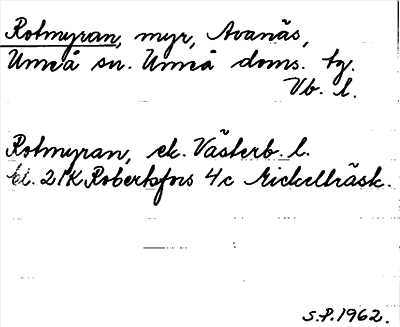 Rotmyran, myr, Avanäs,
Umeå sn. Umeå doms. tg.
Vb. l.
Rotmyran, ek. Västerb. l.
bl. 21K Robertsfors 4c Nickelträsk.
S.P. 1962.